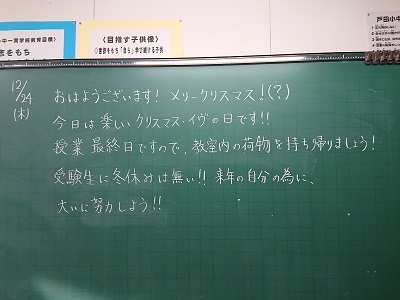 中一貫学校教育目標>
志をもち
<目指す子供像>
◇意欲をもち「自ら」学び続ける子供
戸田小中
12/24
(木)
おはようございます! メリークリスマス!(?)
今日は楽しいクリスマス・イヴの日です!!
授業最終日ですので、教室内の荷物を持ち帰りましょう!
受験生に冬休みは無い!! 来年の自分の為に、
大いに努力しよう!!